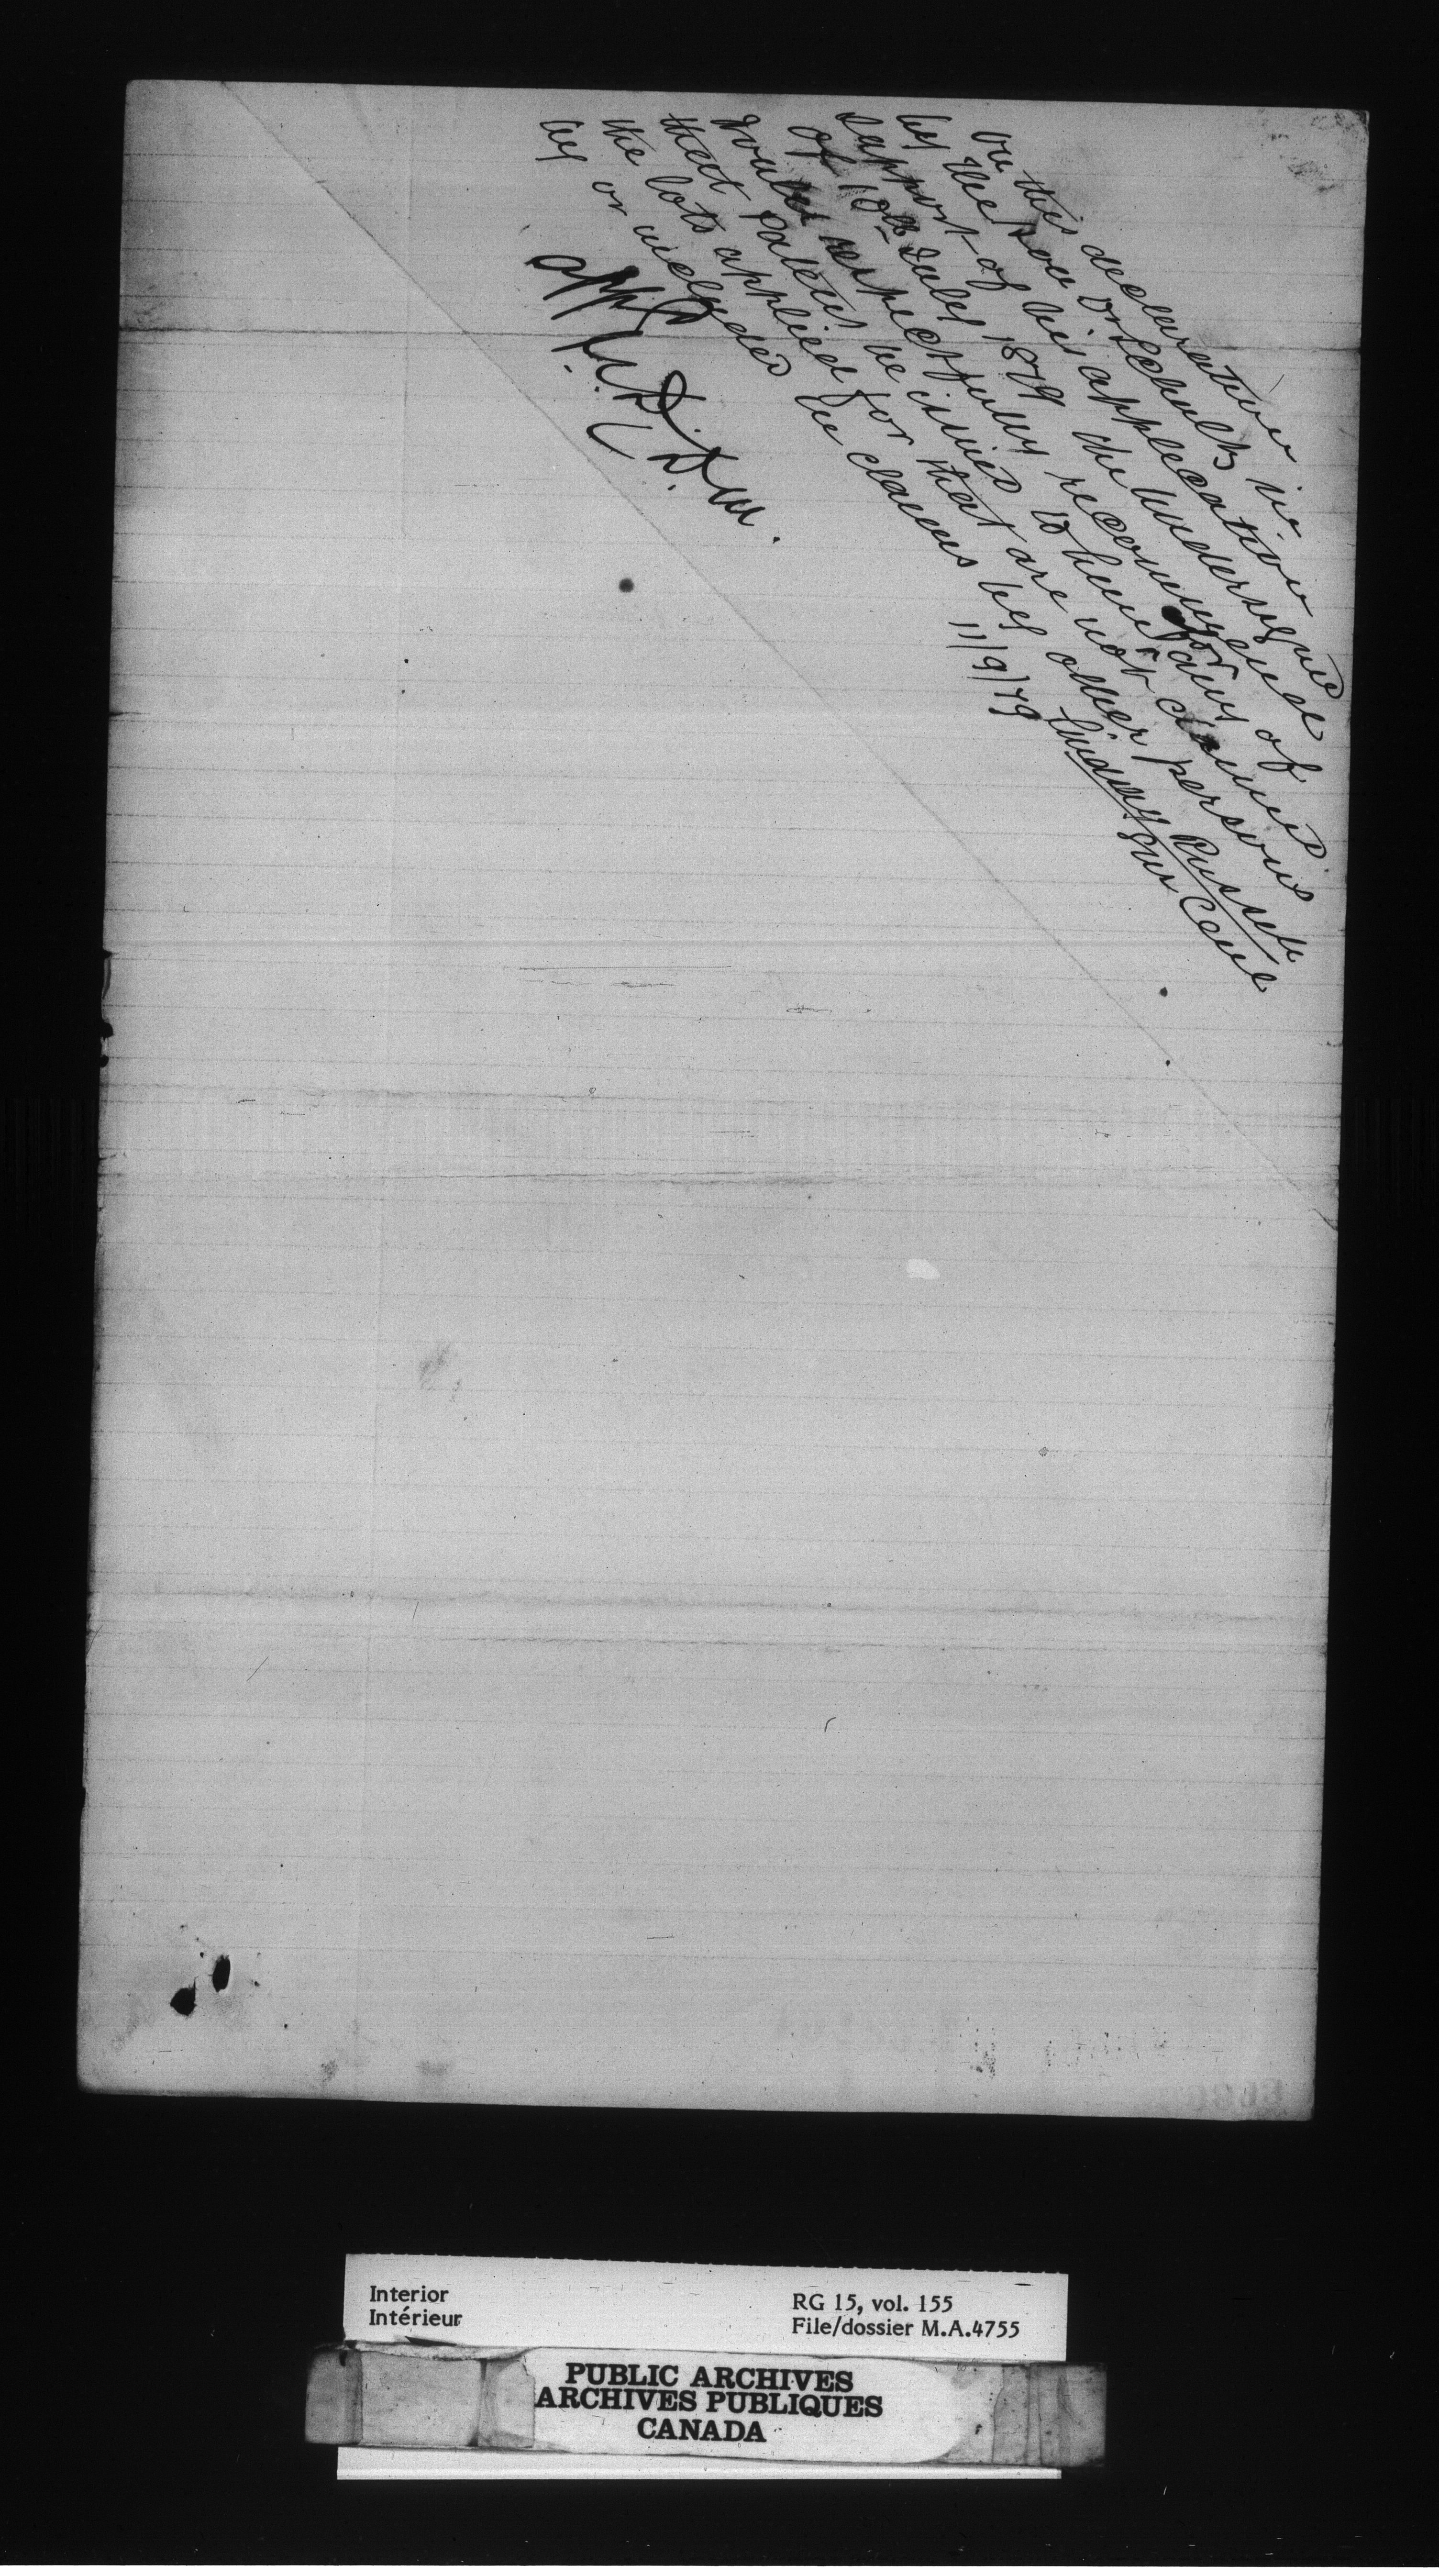 On this declaration
by the Hon Dr Schultz in
support of his application
of 10th July 1879 the undersigned
would respectfully recommend
that patent be issued to him for any of
the lots applied for that are not claimed
by or included in claims by other persons
Lindsay Russell
11/9/79 Sur Genl
appd
J.S.D.
D.M.
Interior
Intérieur
RG 15, vol. 155
File/dossier M.A.4755
PUBLIC ARCHIVES
ARCHIVES PUBLIQUES
CANADA